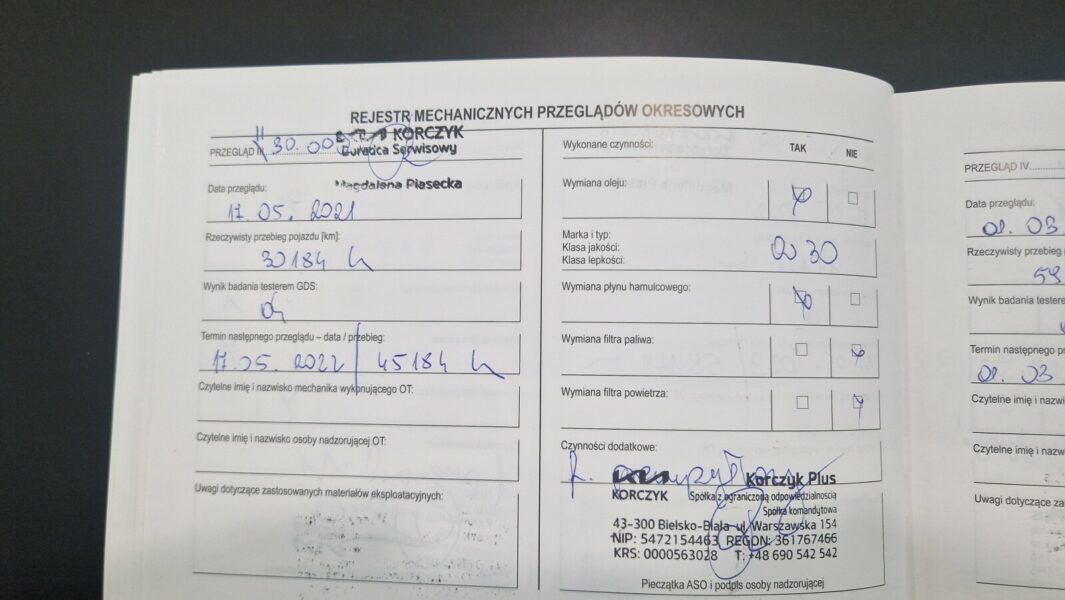 REJESTR MECHANICZNYCH PRZEGLĄDÓW OKRESOWYCH
PRZEGLĄD II 30.000
KORCZYK
Doradca Serwisowy
Magdalena Piasecka
Data przeglądu:
17.05.2021
Rzeczywisty przebieg pojazdu [km]:
30184
Wynik badania testerem GDS:
Termin następnego przeglądu – data / przebieg:
17.05.2022 / 45184
Czytelne imię i nazwisko mechanika wykonującego OT:
Czytelne imię i nazwisko osoby nadzorującej OT:
Uwagi dotyczące zastosowanych materiałów eksploatacyjnych:
Wykonane czynności: TAK NIE
Wymiana oleju:
Marka i typ:
Klasa jakości:
Klasa lepkości:
0W30
Wymiana płynu hamulcowego:
Wymiana filtra paliwa:
Wymiana filtra powietrza:
Czynności dodatkowe:
f. przeciwpyłkowy
KIA Korczyk Plus
KORCZYK Spółka z ograniczoną odpowiedzialnością
Spółka komandytowa
43-300 Bielsko-Biała ul. Warszawska 154
NIP: 5472154463 REGON: 361767466
KRS: 0000563028 T: +48 690 542 542
Pieczątka ASO i podpis osoby nadzorującej
PRZEGLĄD IV
Data przeglądu:
01.03
Rzeczywisty przebieg
Wynik badania
Termin następnego
01.03
Czytelne imię i
Czytelne imię i
Uwagi dotyczące